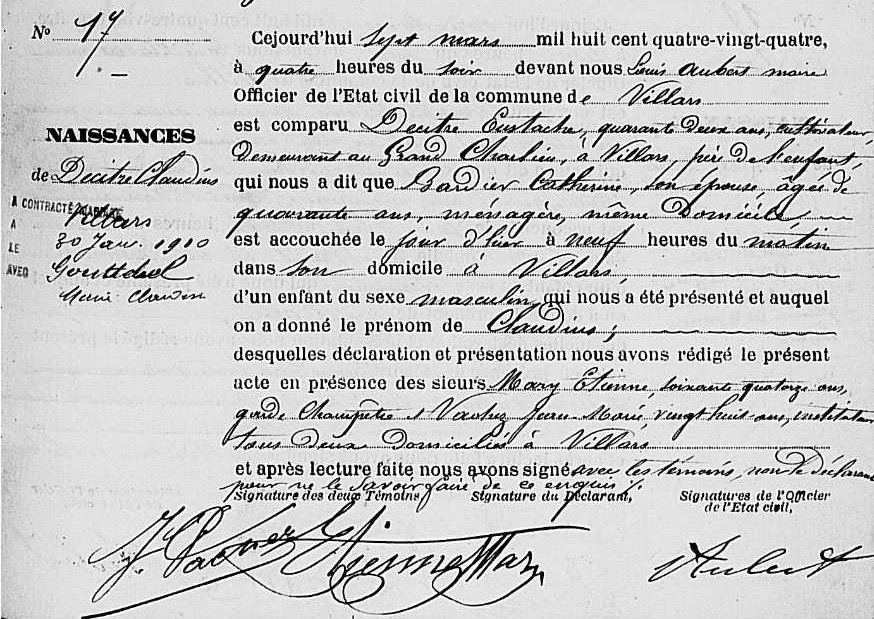 No 17
NAISSANCES
de Decitre Claudius
A CONTRACTÉ MARIAGE
A Villars
LE 30 Janv. 1910
AVEC
Marie Claudine
Cejourd'hui sept mars mil huit cent quatre-vingt-quatre,
à quatre heures du soir devant nous Louis Aubert maire
Officier de l'Etat civil de la commune de Villars
est comparu Decitre Eustache, quarante deux ans, cultivateur,
demeurant au Grand Charlieu, à Villars, père de l'enfant,
qui nous a dit que Bardier Catherine, son épouse, âgée de
quarante ans, ménagère, même domicile
est accouchée le jour d'hier à neuf heures du matin
dans son domicile à Villars,
d'un enfant du sexe masculin, qui nous a été présenté et auquel
on a donné le prénom de Claudius;
desquelles déclaration et présentation nous avons rédigé le présent
acte en présence des sieurs Mary Etienne, soixante quatorze ans,
garde champêtre et Vachez Jean Marie, vingt huit ans, instituteur
tous deux domiciliés à Villars
et après lecture faite nous avons signé avec les témoins, non le déclarant
pour ne le savoir faire de ce enquis ./.
Signature des deux Témoins, Signature du Déclarant, Signatures de l'Officier
de l'Etat civil,
J. Vachez Etienne Mary Aubert